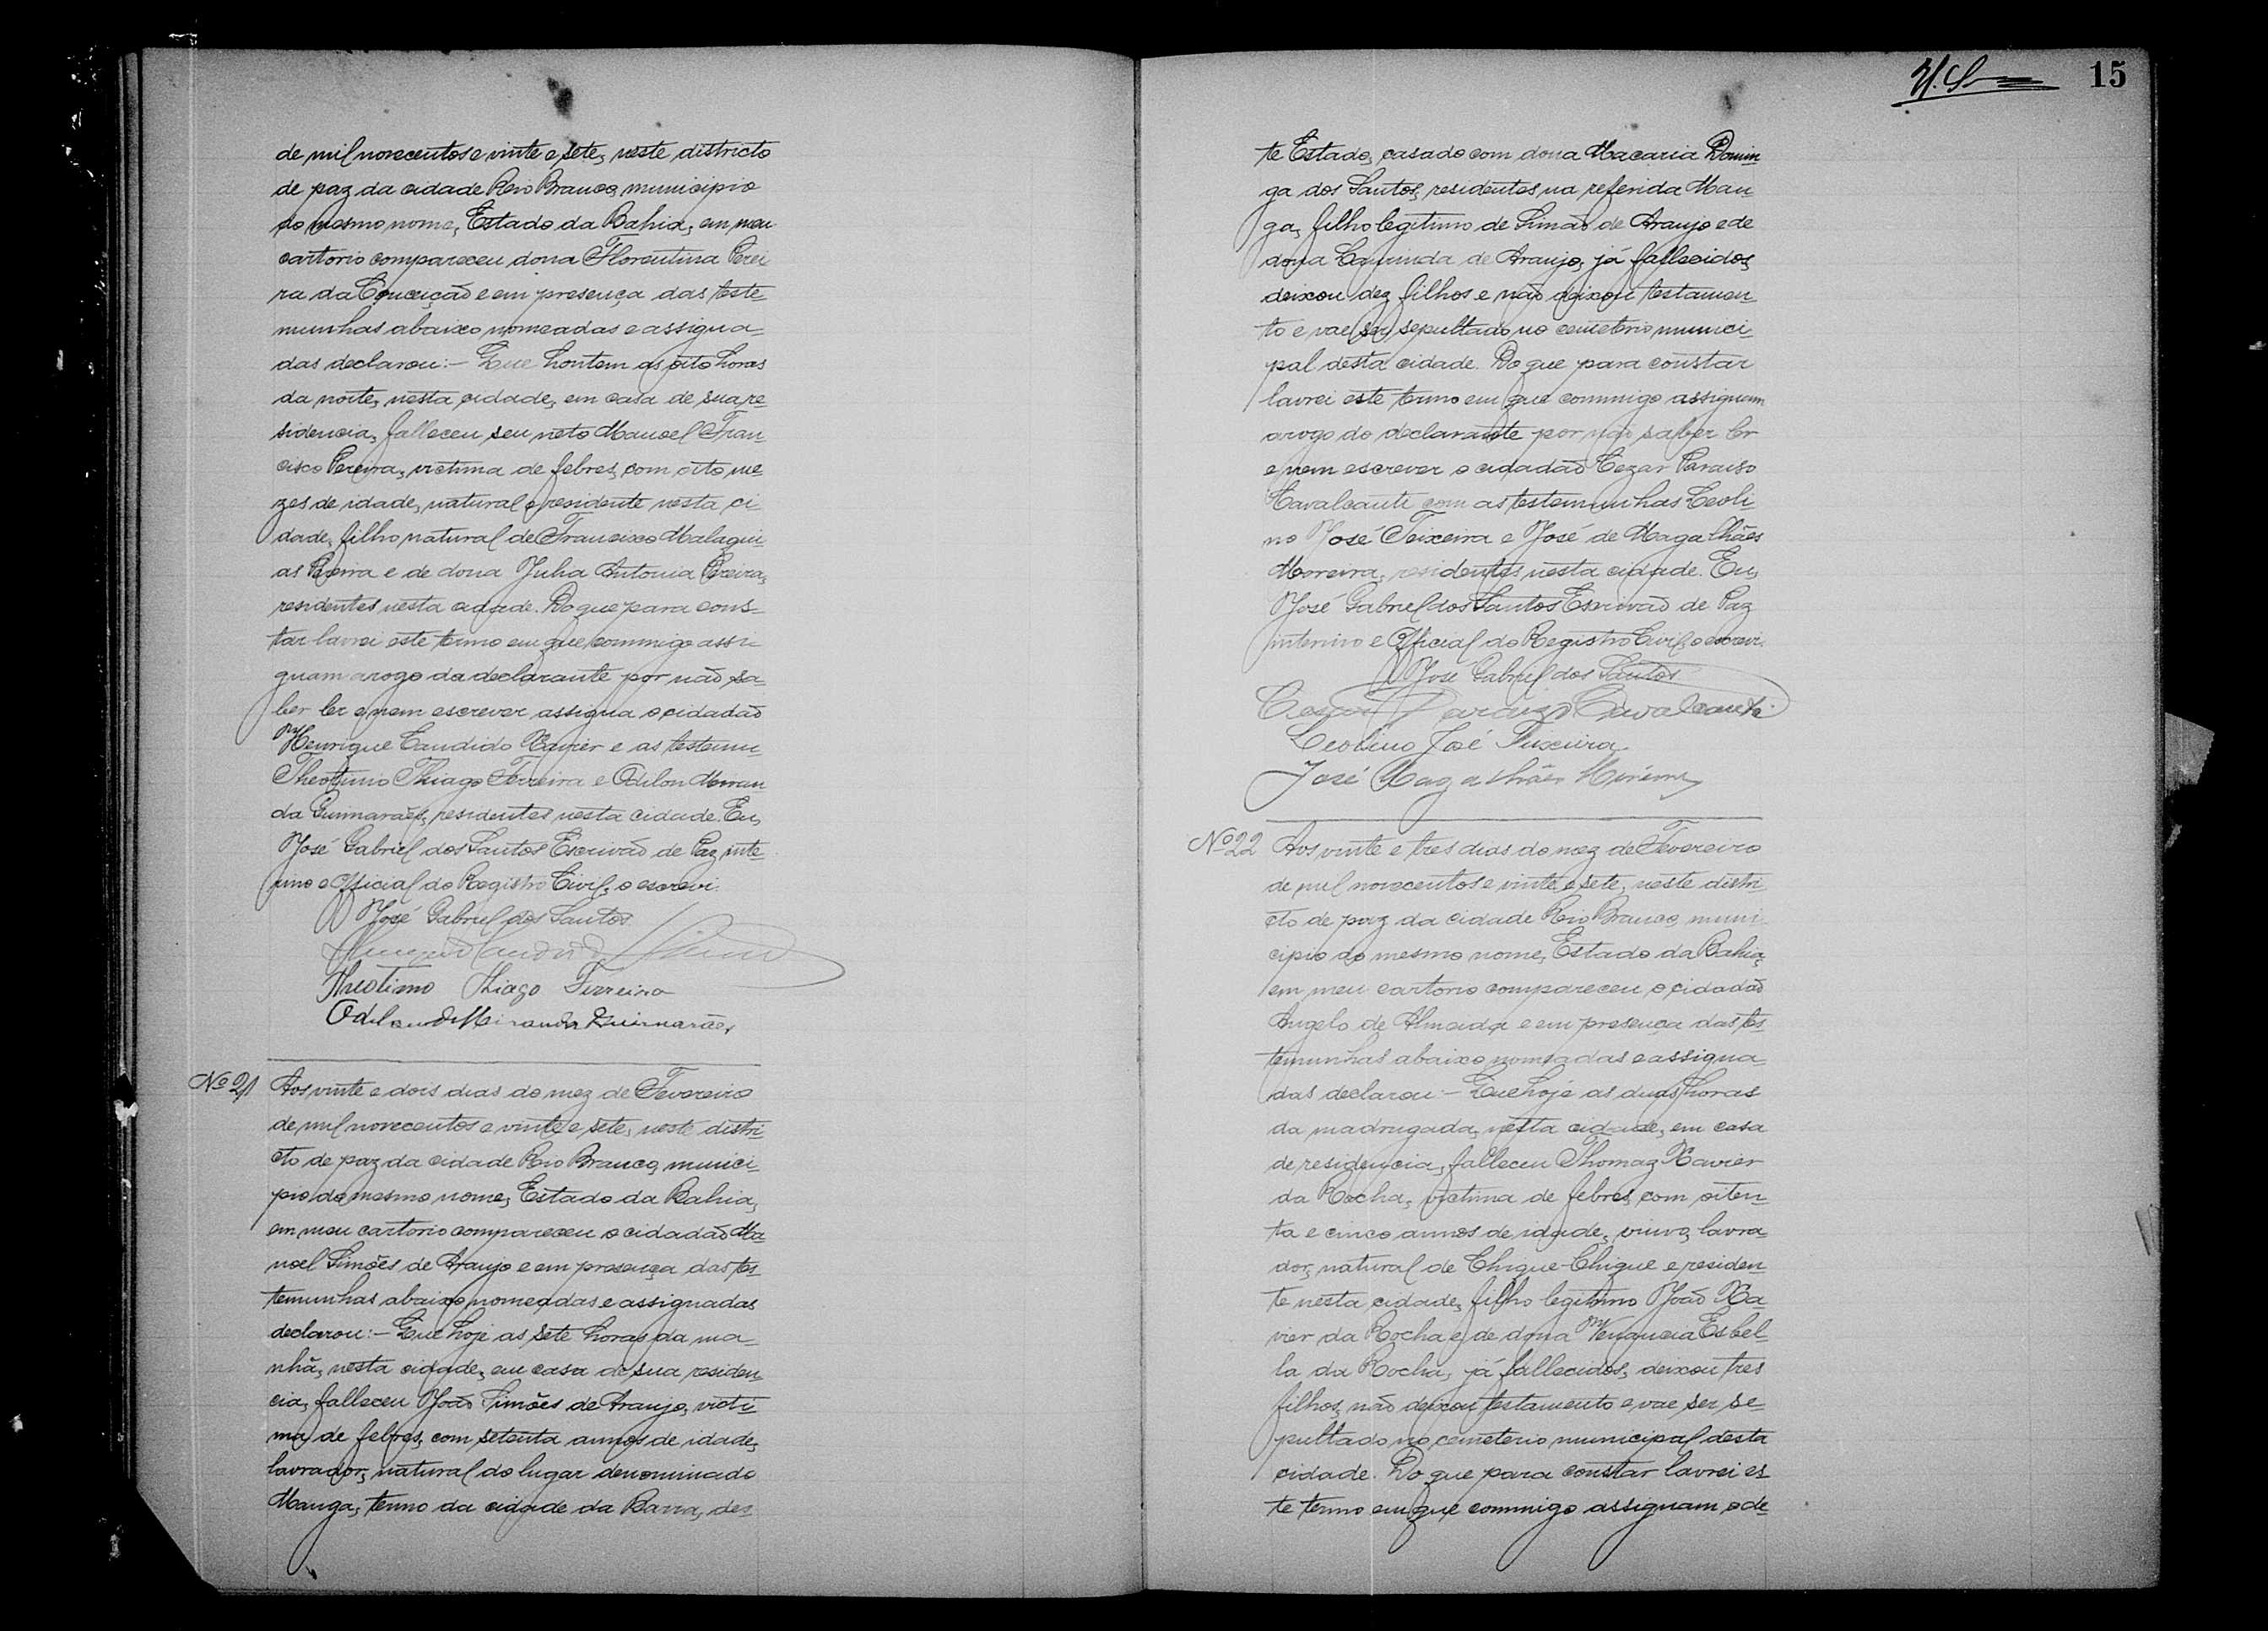 de mil novecentos e vinte e sete, neste districto
de paz da cidade Rio Branco, municipio
do mesmo nome, Estado da Bahia, em meu
cartorio compareceu dona Florentina Perei
ra da Conceição e em presença das teste-
munhas abaixo nomeadas e assigna-
das declarou:- Que hontem as oito horas
da noite, nesta cidade, em casa de sua re-
sidencia, falleceu seu neto Manoel Fran
cisco Pereira, victima de febres, com oito me
zes de idade, natural e residente nesta ci-
dade, filho natural de Francisco Malaqui-
as Pereira e de dona Julia Antonia Pereira,
residentes nesta cidade. Do que para cons-
tar lavrei este termo em que commigo assi
gnam arogo da declarante por não sa-
ber ler e nem escrever assigna o cidadão
Henrique Candido Xavier e as testemu
Theotimo Thiago Ferreira e Odilon Miran
da Guimarães, residentes nesta cidade. Eu,
José Gabriel dos Santos Escrivão de Paz inte-
rino e Official do Registro Civil, o escrevi.
José Gabriel dos Santos
Theotimo Thiago Ferreira
Odilon de Miranda Guimarães
Nº 21 Aos vinte e dois dias do mez de Fevereiro
de mil novecentos e vinte e sete, neste distri-
cto de paz da cidade Rio Branco, munici-
pio do mesmo nome, Estado da Bahia,
em meu cartorio compareceu o cidadão Ma-
noel Simões de Araujo e em presença das tes-
temunhas abaixo nomeadas e assignadas
declarou:- Que hoje as sete horas da ma-
nhã, nesta cidade, em casa de sua residen-
cia, falleceu João Simões de Araujo, victi-
ma de febres, com setenta annos de idade,
lavrador, natural do lugar denominado
Manga, termo da cidade da Barra, des-
15
te Estado, casado com dona Macaria Domin
ga dos Santos, residentes na referida Man-
ga, filho legitimo de Simão de Araujo e de
dona de Araujo, já fallecidos,
deixou dez filhos e não deixou testamen-
to e vae ser sepultado no cemeterio munici-
pal desta cidade. Do que para constar
lavrei este termo em que commigo assignam
arogo do declarante por não saber ler
e nem escrever o cidadão Cezar Paraiso
Cavalcante com as testemunhas Leoli-
no José Teixeira e José de Magalhães
Moreira, residentes nesta cidade. Eu,
José Gabriel dos Santos Escrivão de Paz
interino e Official do Registro Civil, o escrevi.
José Gabriel dos Santos
Cezar Paraizo Cavalcante
Leolino José Teixeira
José Magalhães
Nº 22 Aos vinte e tres dias do mez de Fevereiro
de mil novecentos e vinte e sete, neste distri-
cto de paz da cidade Rio Branco, muni-
cipio do mesmo nome, Estado da Bahia,
em meu cartorio compareceu o cidadão
Angelo de Almeida e em presença das tes-
temunhas abaixo nomeadas e assigna-
das declarou:- Que hoje as duas horas
da madrugada, nesta cidade, em casa
de residencia, falleceu Thomaz Xavier
da Rocha, victima de febres, com oiten-
ta e cinco annos de idade, viuvo, lavra-
dor, natural de Chique-Chique e residen-
te nesta cidade, filho legitimo João Xa-
vier da Rocha e de dona Venancia Esbel-
la da Rocha, já fallecidos, deixou tres
filhos, não deixou testamento e vae ser se-
pultado no cemeterio municipal desta
cidade. Do que para constar lavrei es-
te termo em que commigo assignam o de-